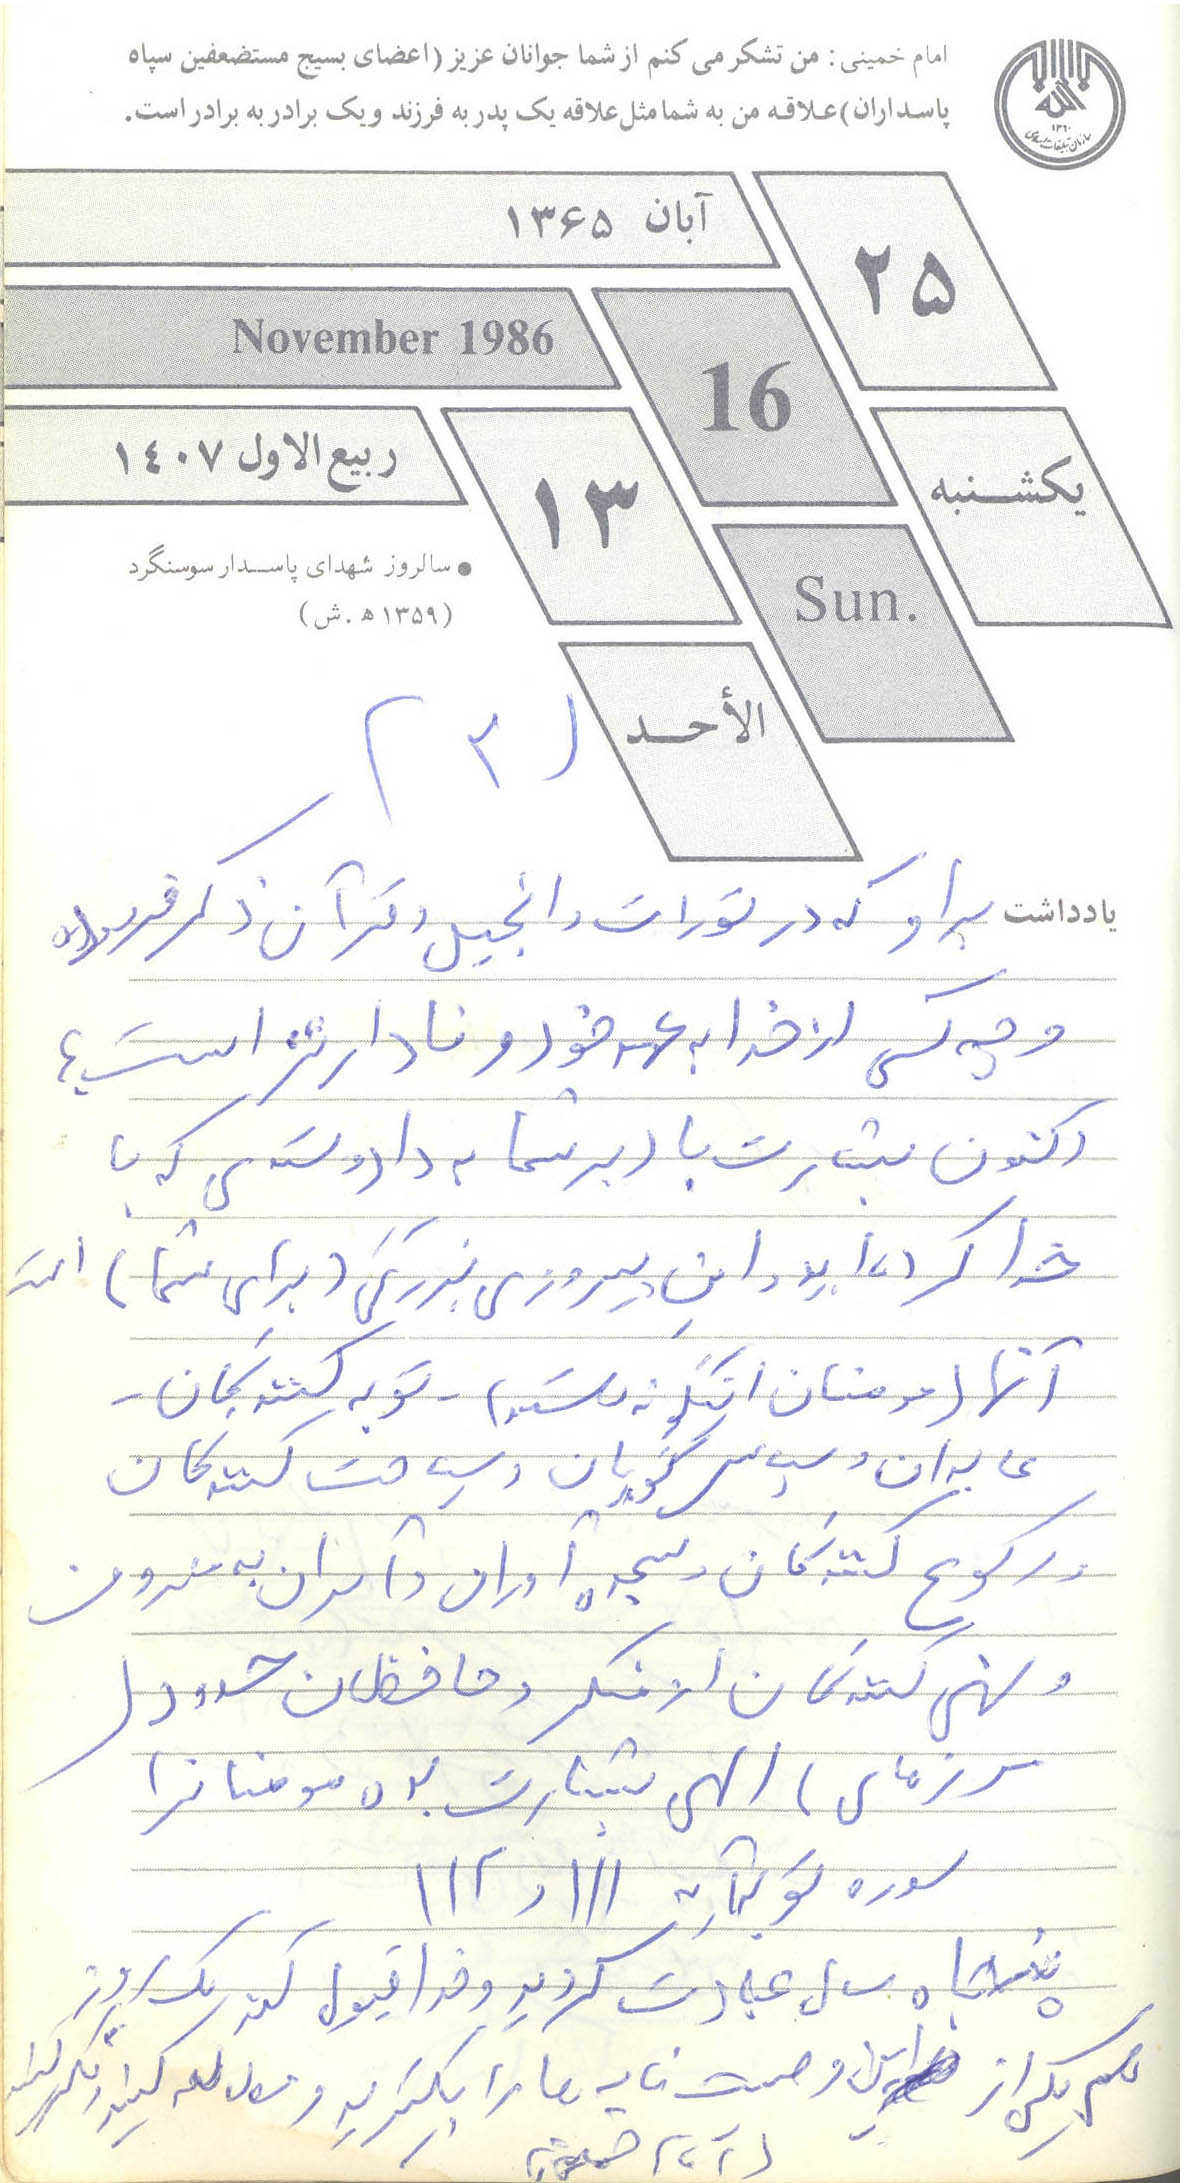 امام خمینی: من تشکر می کنم از شما جوانان عزیز (اعضای بسیج مستضعفین سپاه
پاسداران) علاقه من به شما مثل علاقه یک پدر به فرزند و یک برادر به برادر است.
۱۳۶۰
سازمان تبلیغات اسلامی
آبان ۱۳۶۵
۲۵
November 1986
16
ربیع الاول ۱٤۰۷
۱۳
یکشنبه
• سالروز شهدای پاسدار سوسنگرد
(۱۳۵۹ ه.ش)
Sun.
الأحد
(۳)
یادداشت
بر او که در تورات و انجیل و قرآن ذکر فرموده
و چه کسی از خدا به عهد خود وفادارتر است؟
اکنون بشارت باد بر شما به داد وستدی که با
خدا کرده اید و این پیروزی بزرگی (برای شما) است
آنها (مومنان اینگونه هستند) - توبه کنندگان -
عابدان و سپاس گویان و سیاحت کنندگان
و رکوع کنندگان و سجده آوران و آمران به معروف
و نهی کنندگان از منکر و حافظان حدود (
مرزهای) الهی بشارت بده مومنانرا
سوره توبه آیات ۱۱۱ و ۱۱۲
پنجاه سال عبادت کردید و خدا قبول کند یک روز
هم یکی از این وصیت نامه ها را بگیرید و مطالعه کنید و تفکر کنید
(امام خمینی)